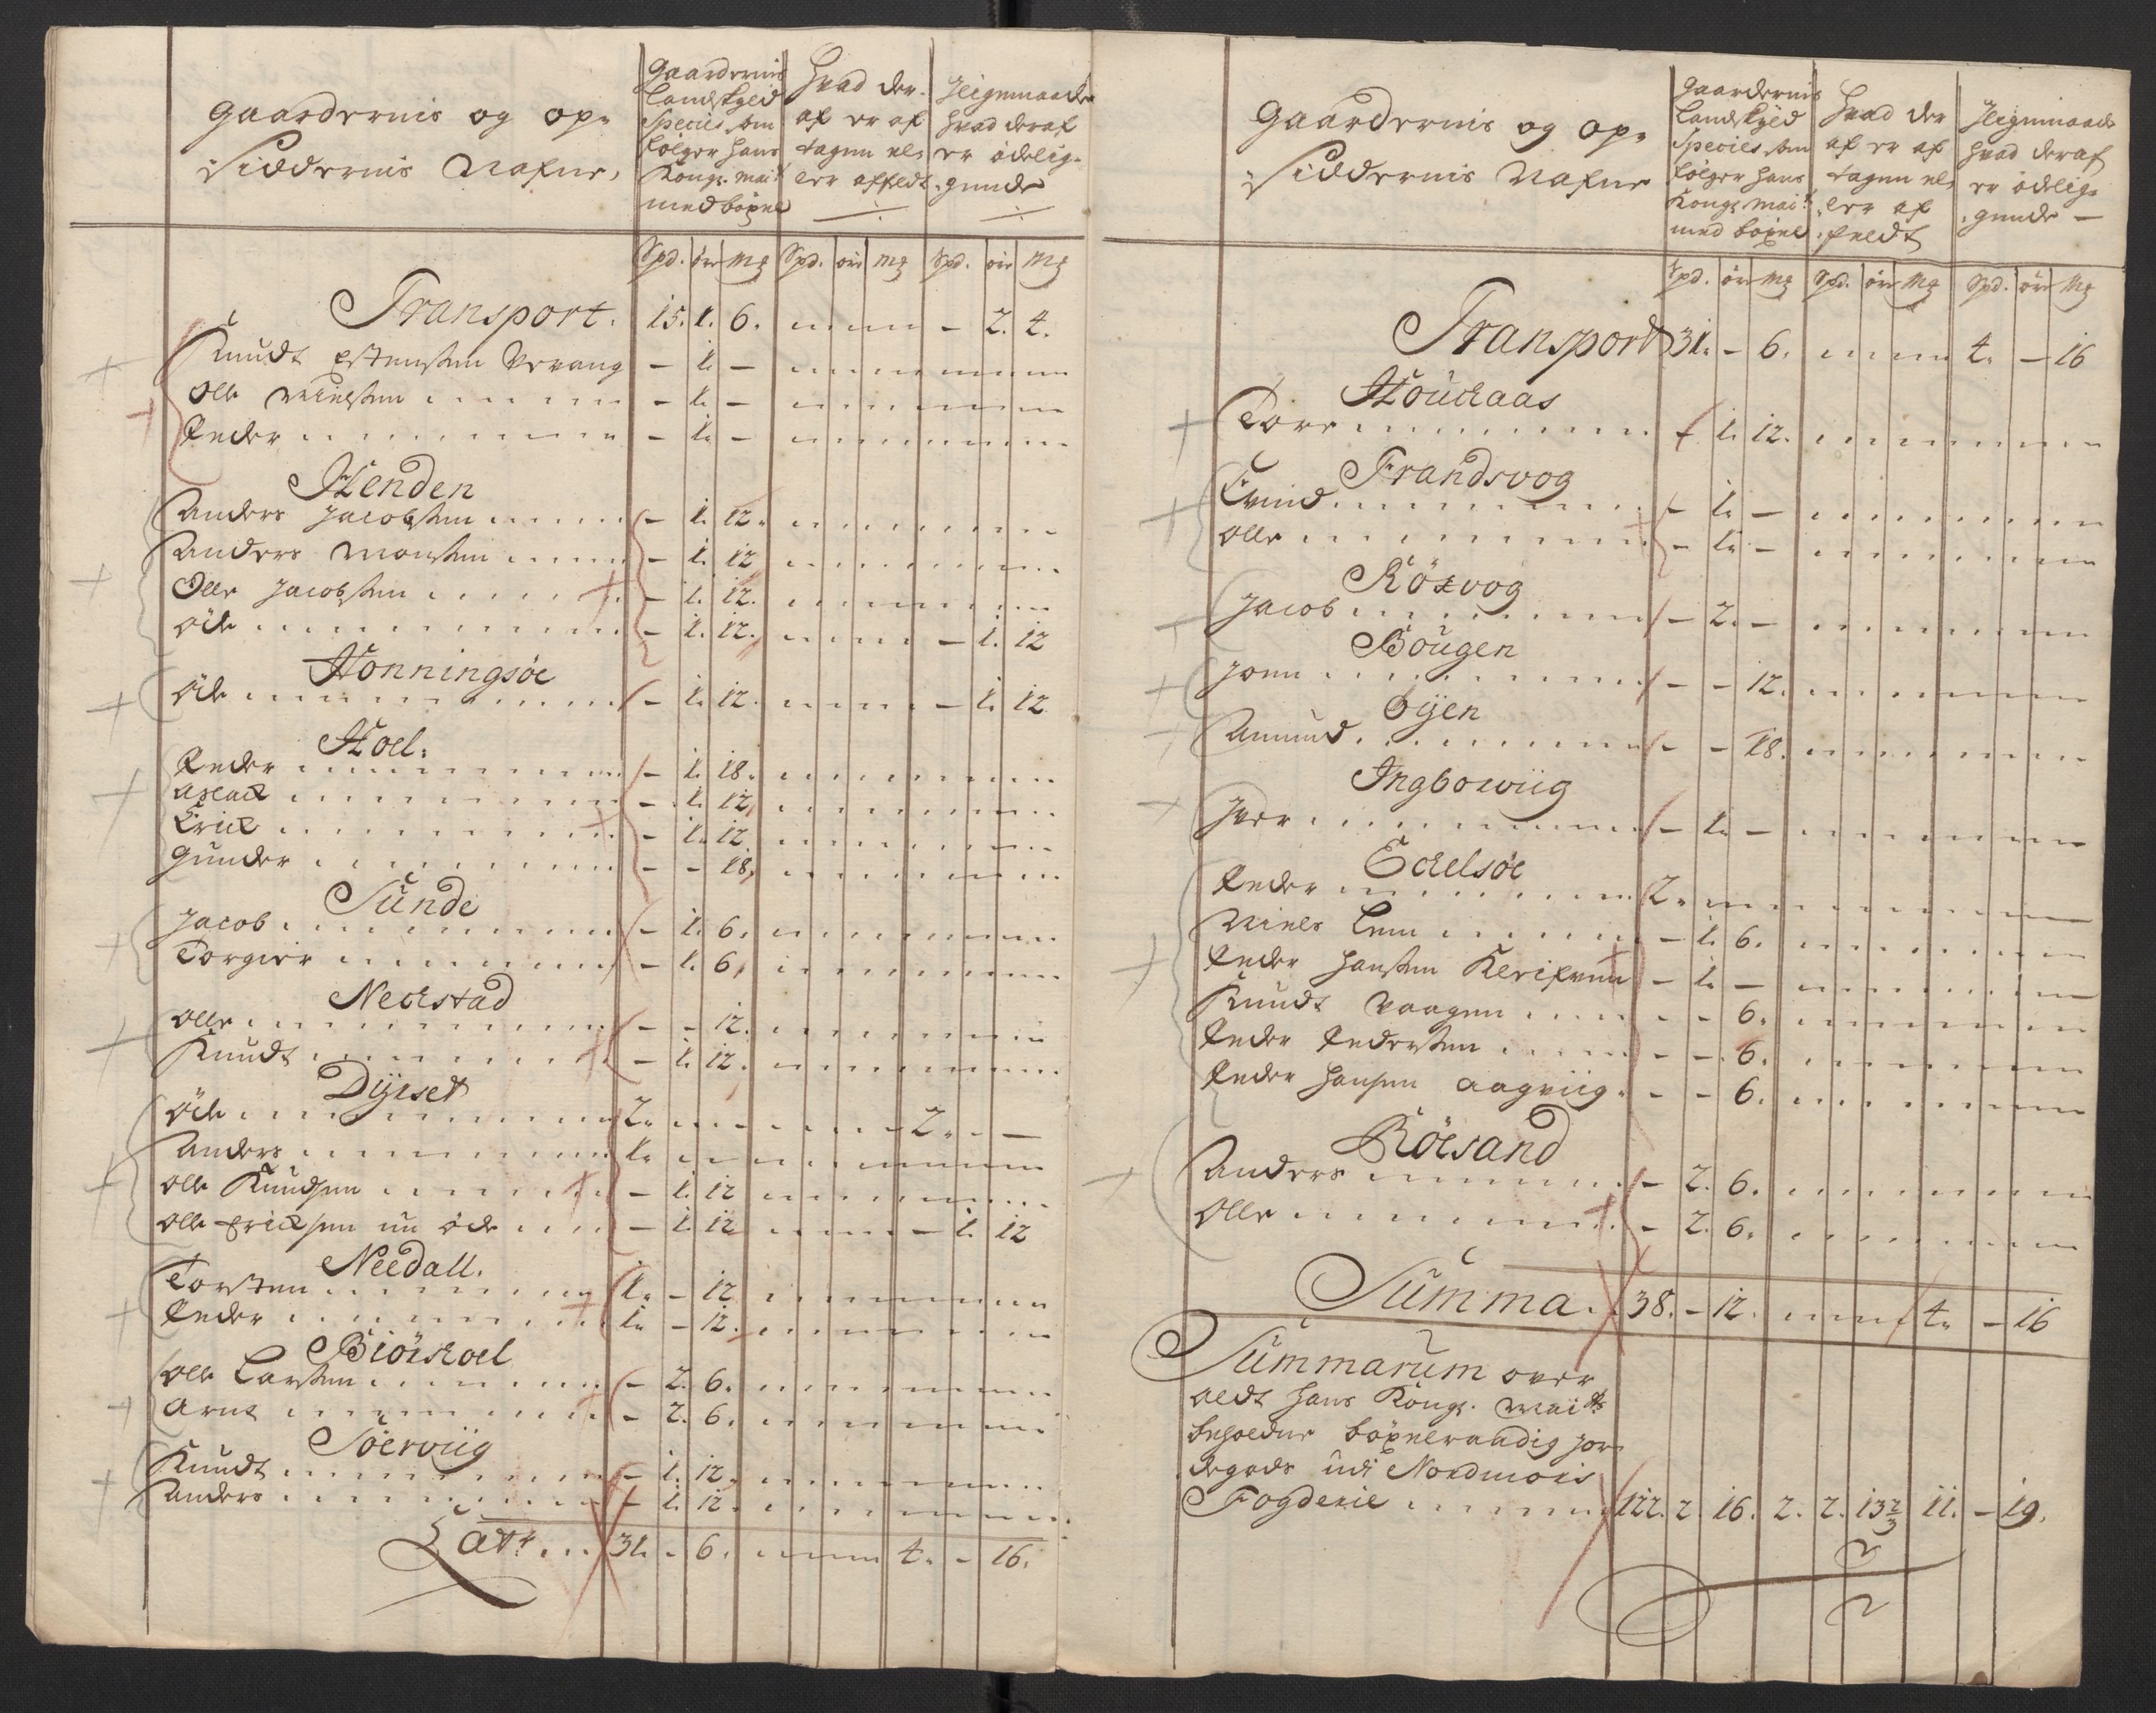 Gaardernis og op-
Siddernis Nafne,
Gaardernis
Landskyld
Species som
følger hans
Kongl. Mait
med böxel
Hvad der-
af er af
tagen el-
ler affeldt
Jligemaade
hvad deraf
er ödelig-
gende
Spd. ör Mg Spd. ör Mg Spd. ör Mg
Transport. 15. 1. 6. - 2. 4.
Knudt Estensen Vevang - 1. -
Olle Nielsen - 1. -
Peder - 1. -
Henden
Anders Jacobsen - 1. 12.
Anders Monsen - 1. 12
Olle Jacobsen - 1. 12.
Öde - 1. 12. - 1. 12
Honningsöe
Öde - 1. 12. - 1. 12
Hoel.
Peder - 1. 18.
Aslack - 1. 12,
Erick - 1. 12.
Gunder - - 18,
Sunde
Jacob - 1. 6.
Torgier - 1. 6,
Neckstad
Olle - - 12.
Knudt - 1. 12.
Dyrset
Öde 2. 2. - -
Anders 1.
Olle Knudsen - 1. 12
Olle Ericksen nu öde - 1. 12 - 1. 12
Needall.
Torsten 1. - 12
Peder 1. - 12.
Biörkoel
Olle Larsen - 2. 6.
Arne - 2. 6.
Söerviig
Knudt - 1. 12.
Anders - 1. 12.
Latr 31. - 6. 4. - 16.
Gaardernis og op-
Siddernis Nafne
Gaardernis
Landskyld
Species som
følger hans
Kongl Mait
med böxel
Hvad der
af er af
tagen el-
ler af
feldt
Jligemaade
hvad deraf
er ödelig-
gende -
Spd. ör Mg Spd. ör Mg Spd. ör Mg
Transport 31. - 6. 4. - 16
Houckaas
Tore - 1. 12.
Frandsvog
Evind - 1. -
Olle - 1. -
Rösvog
Jacob - 2. -
Bougen
Jonn - - 12.
Öyen
Amund - - 18.
Ingborviig
Iver - 1. -
Eckelsöe
Peder 2.
Niels Lem - 1. 6.
Peder Hansen - 1. -
Knudt Vaagen - - 6.
Peder Pedersen - - 6.
Peder Hansen Aagviig - - 6.
Röesand
Anders - 2. 6.
Olle - 2. 6.
Summa 38. - 12. 4. - 16
Summarum over
aldt hans Kongl. Maits
beholdne böxelraadig Jor-
degods udi Nordmörs
Fogderie 122. 2. 16. 2. 2. 13 2/3 11. - 19.